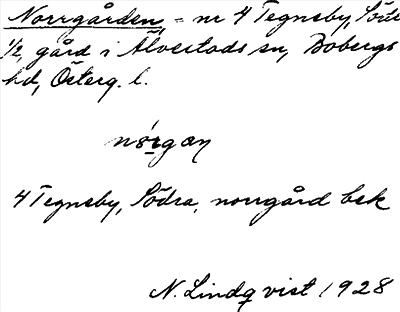 Norrgården, = nr 4 Tegneby, Södra
1/2, gård i Alvestads sn, Bobergs
hd, Österg. l.
nørgan
4 Tegneby, Södra, norrgård bsk
N. Lindqvist 1928